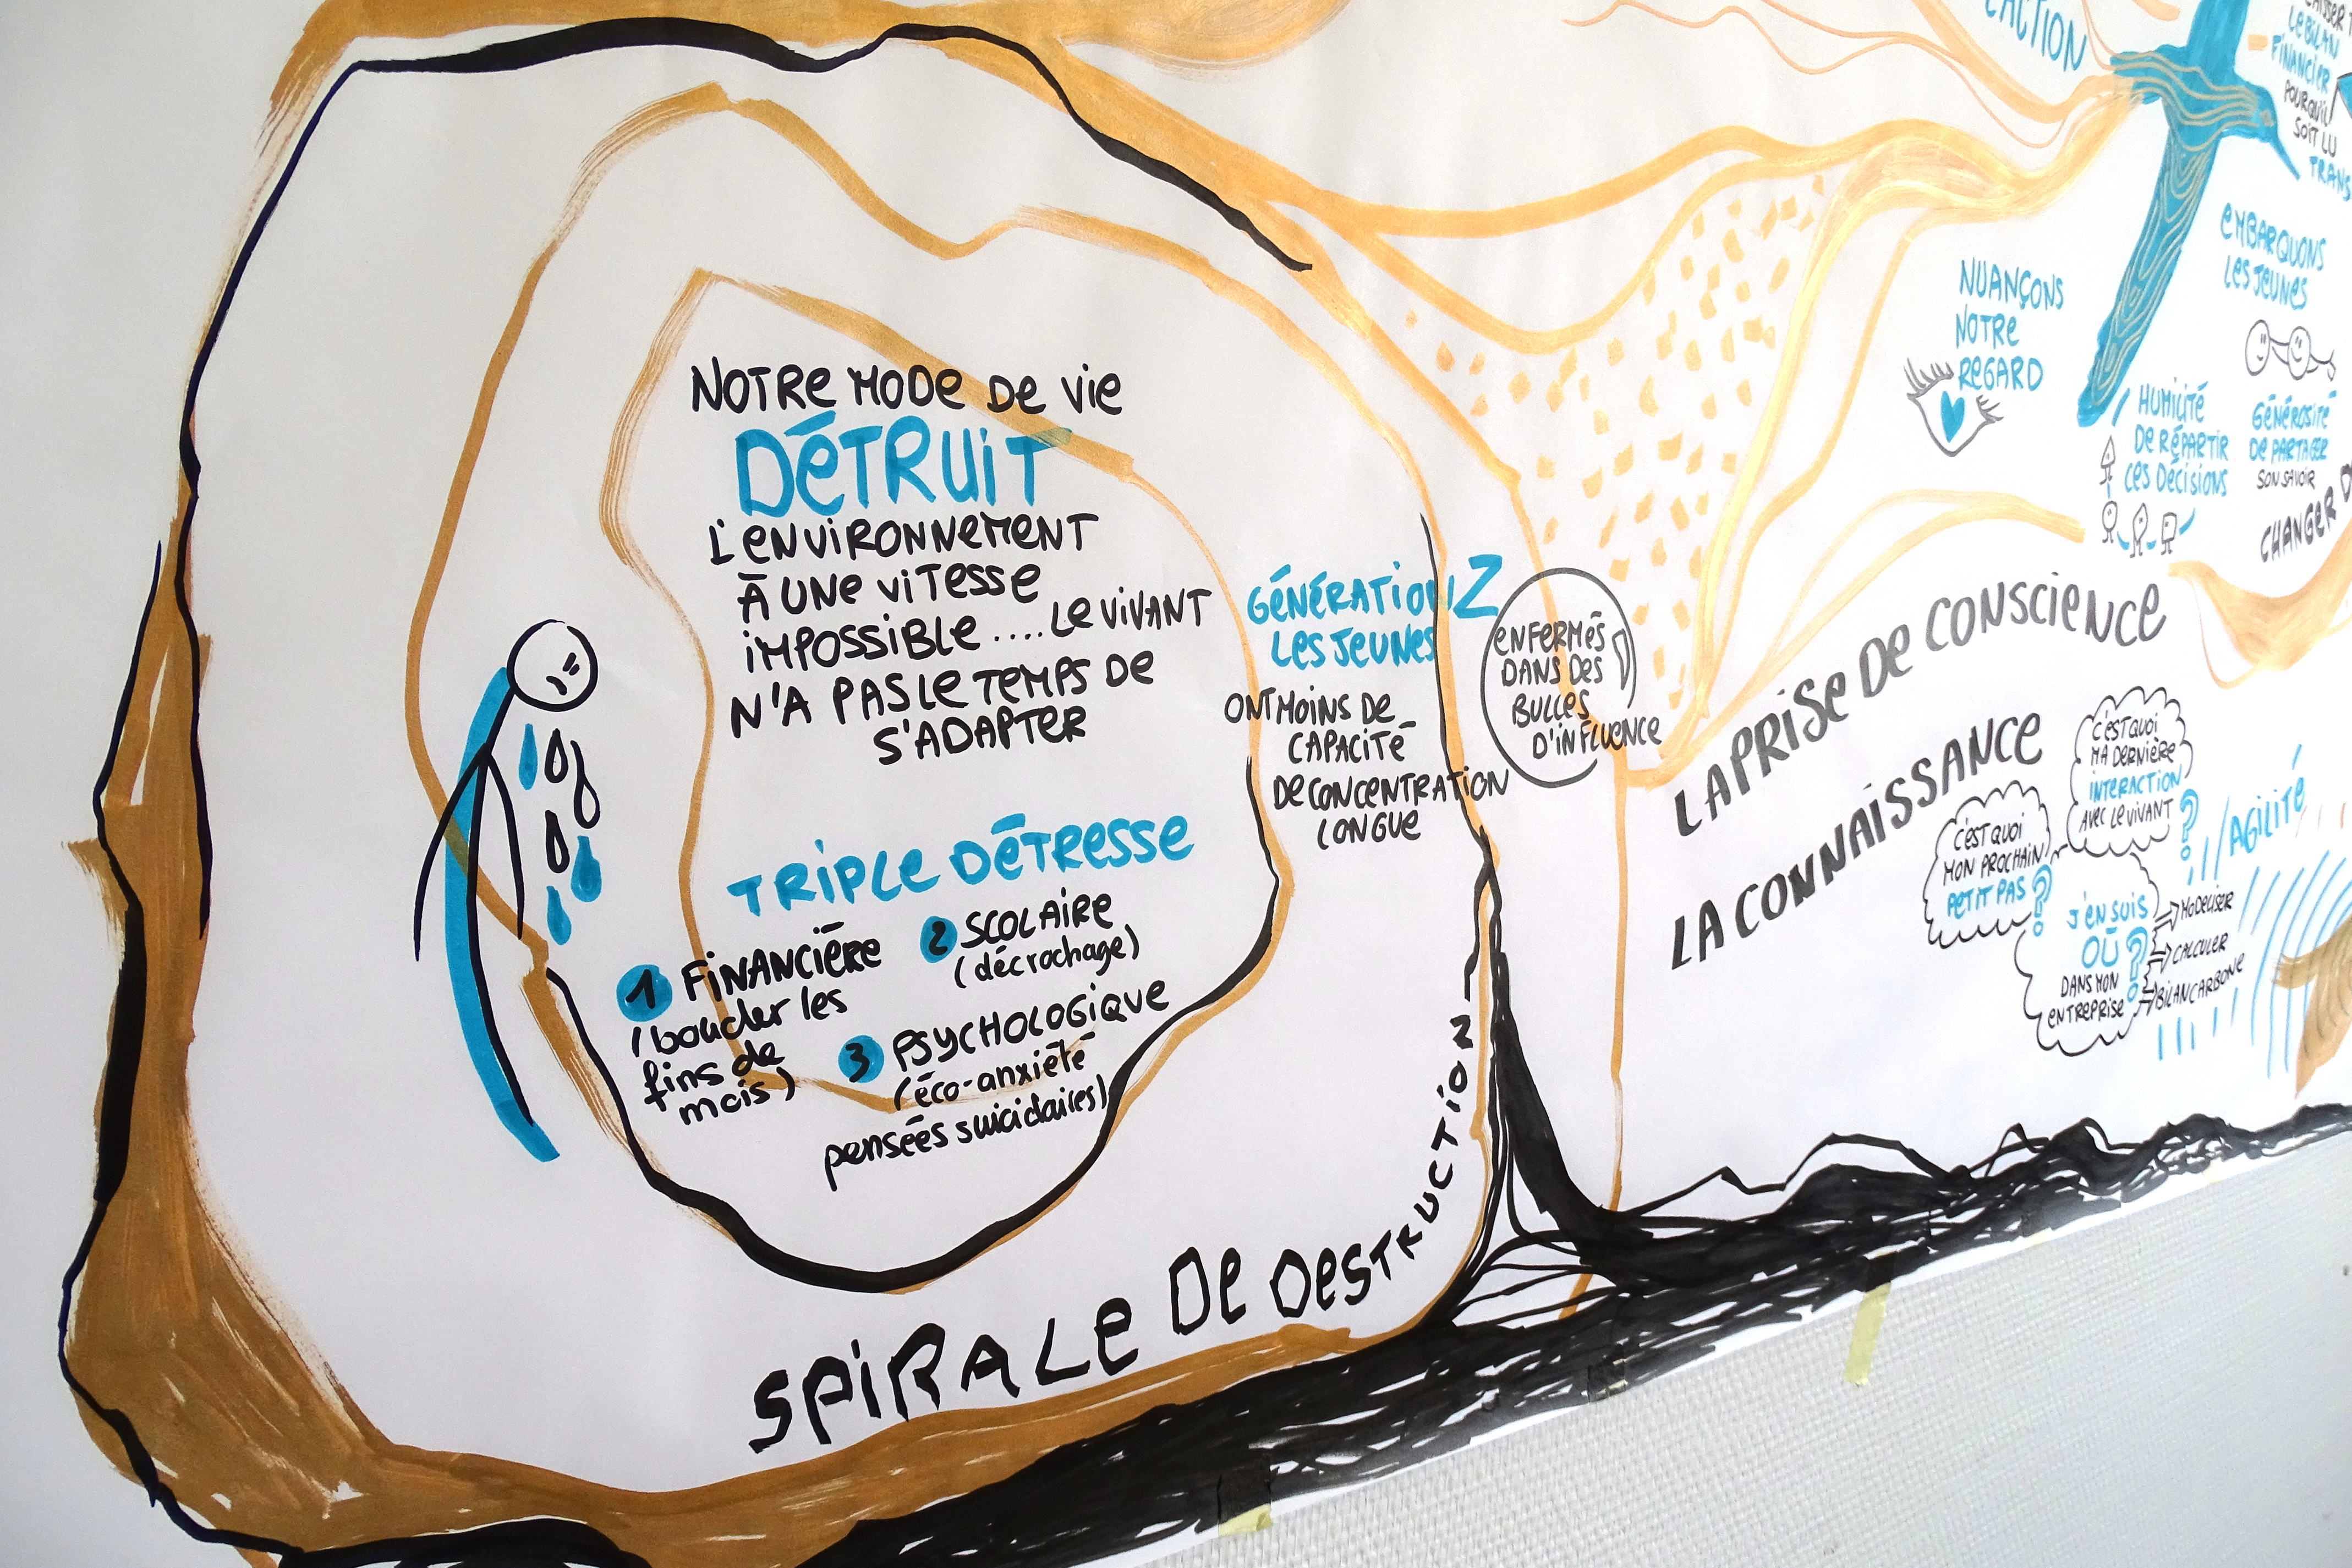 NOTRE MODE DE VIE
DÉTRUIT
L'ENVIRONNEMENT
À UNE VITESSE
IMPOSSIBLE .... LE VIVANT
N'A PAS LE TEMPS DE
S'ADAPTER
TRIPLE DÉTRESSE
1 FINANCIÈRE
(boucler les
fins de
mois)
2 SCOLAIRE
(décrochage)
3 PSYCHOLOGIQUE
(éco-anxiété
pensées suicidaires)
SPIRALE DE DESTRUCTION
GÉNÉRATION Z
LES JEUNES
ONT MOINS DE
CAPACITÉ
DE CONCENTRATION
LONGUE
ENFERMÉS
DANS DES
BULLES
D'INFLUENCE
LA PRISE DE CONSCIENCE
LA CONNAISSANCE
NUANÇONS
NOTRE
REGARD
HUMILITÉ
DE RÉPARTIR
LES DÉCISIONS
EMBARQUONS
LES JEUNES
GÉNÉROSITÉ
DE PARTAGER
SON SAVOIR
CHANGER
LE BILAN
FINANCIER
POURQU'IL
SOIT LU
TRANS
C'EST QUOI
MA DERNIÈRE
INTERACTION
AVEC LE VIVANT ?
C'EST QUOI
MON PROCHAIN
PETIT PAS ?
J'EN SUIS
OÙ ?
DANS MON
ENTREPRISE
MODÉLISER
CALCULER
BILAN CARBONE
AGILITÉ